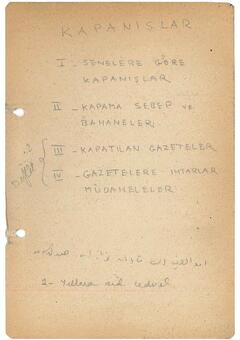 KAPANIŞLAR
I - SENELERE GÖRE
KAPANIŞLAR
II - KAPAMA SEBEP ve
BAHANELER.
III - KAPATILAN GAZETELER
IV - GAZETELERE İHTARLAR
MÜDAHELELER
2- Yıllara aid cedvel